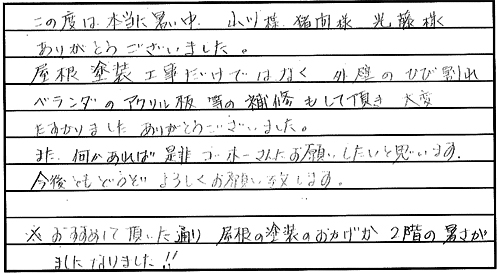 この度は本当に暑い中、小川様 猪同様 光藤様
ありがとうございました。
屋根塗装工事だけではなく 外壁のひび割れ
ベランダのアクリル板等の補修もして頂き 大変
たすかりました ありがとうございました。
また、何かあれば是非 コーホーさんにお願いしたいと思います。
今後ともどうぞよろしくお願い致します。
※ おすすめして頂いた通り 屋根の塗装のおかげか 2階の暑さが
ましになりました!!